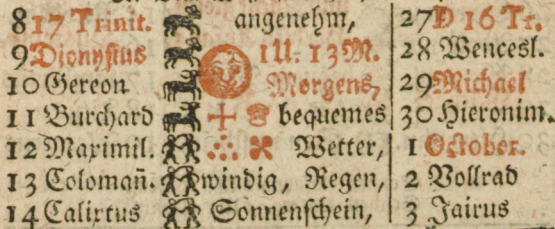 8 17 Trinit. angenehm, 27 D 16 Tr.
9 Dionysius 1 U. 13 M. 28 Wencesl.
10 Gereon Morgens, 29 Michael
11 Burchard bequemes 30 Hieronim.
12 Maximil. Wetter, 1 October.
13 Colomañ. windig, Regen, 2 Vollrad
14 Calixtus Sonnenschein, 3 Jairus